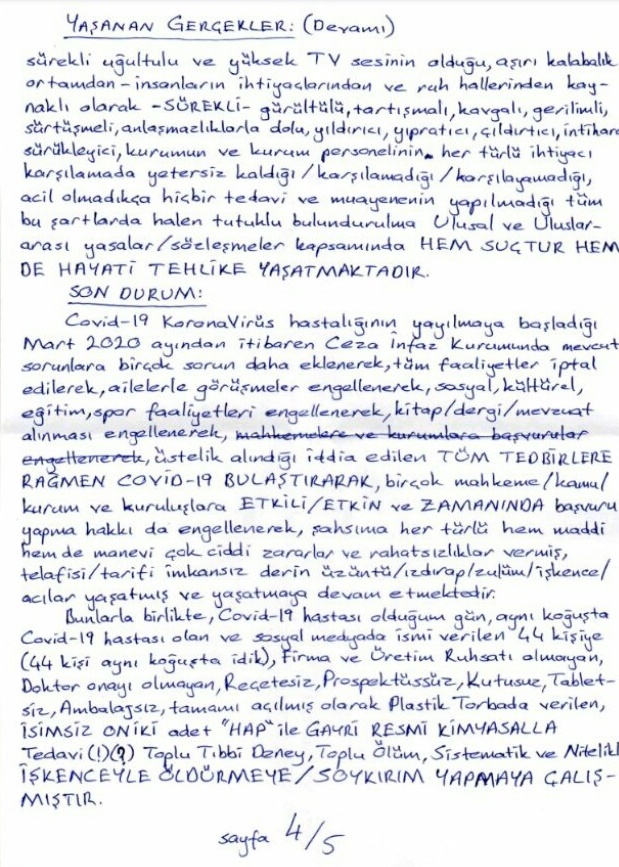 YAŞANAN GERÇEKLER: (Devamı)
sürekli uğultulu ve yüksek TV sesinin olduğu, aşırı kalabalık
ortamdan - insanların ihtiyaçlarından ve ruh hallerinden kay-
naklı olarak -SÜREKLİ- gürültülü, tartışmalı, kavgalı, gerilimli,
sürtüşmeli, anlaşmazlıklarla dolu, yıldırıcı, yıpratıcı, çıldırtıcı, intihara
sürükleyici, kurumun ve kurum personelinin her türlü ihtiyacı
karşılamada yetersiz kaldığı/karşılamadığı/karşılayamadığı,
acil olmadıkça hiçbir tedavi ve muayenenin yapılmadığı tüm
bu şartlarda halen tutuklu bulundurulma Ulusal ve Uluslar-
arası yasalar/sözleşmeler kapsamında HEM SUÇTUR HEM
DE HAYATİ TEHLİKE YAŞATMAKTADIR.
SON DURUM:
Covid-19 KoronaVirüs hastalığının yayılmaya başladığı
Mart 2020 ayından itibaren Ceza İnfaz Kurumunda mevcut
sorunlara birçok sorun daha eklenerek, tüm faaliyetler iptal
edilerek, ailelerle görüşmeler engellenerek, sosyal, kültürel,
eğitim, spor faaliyetleri engellenerek, kitap/dergi/mevzuat
alınması engellenerek, mahkemelere ve kurumlara başvurular
engellenerek, üstelik alındığı iddia edilen TÜM TEDBİRLERE
RAĞMEN COVİD-19 BULAŞTIRARAK, birçok mahkeme/kamu/
kurum ve kuruluşlara ETKİLİ/ETKİN ve ZAMANINDA başvuru
yapma hakkı da engellenerek, şahsıma her türlü hem maddi
hem de manevi çok ciddi zararlar ve rahatsızlıklar vermiş,
telafisi/tarifi imkansız derin üzüntü/ızdırap/zulüm/işkence/
acılar yaşatmış ve yaşatmaya devam etmektedir.
Bunlarla birlikte, Covid-19 hastası olduğum gün, aynı koğuşta
Covid-19 hastası olan ve sosyal medyada ismi verilen 44 kişiye
(44 kişi aynı koğuşta idik), Firma ve Üretim Ruhsatı olmayan,
Doktor onayı olmayan, Reçetesiz, Prospektüssüz, Kutusuz, Tablet-
siz, Ambalajsız, tamamı açılmış olarak Plastik Torbada verilen,
İSİMSİZ ONİKİ adet "HAP" ile GAYRİ RESMİ KİMYASALLA
Tedavi (!)(?) Toplu Tıbbi Deney, Toplu Ölüm, Sistematik ve Nitelikli
İŞKENCEYLE ÖLDÜRMEYE/SOYKIRIM YAPMAYA ÇALIŞ-
MIŞTIR.
sayfa 4/5